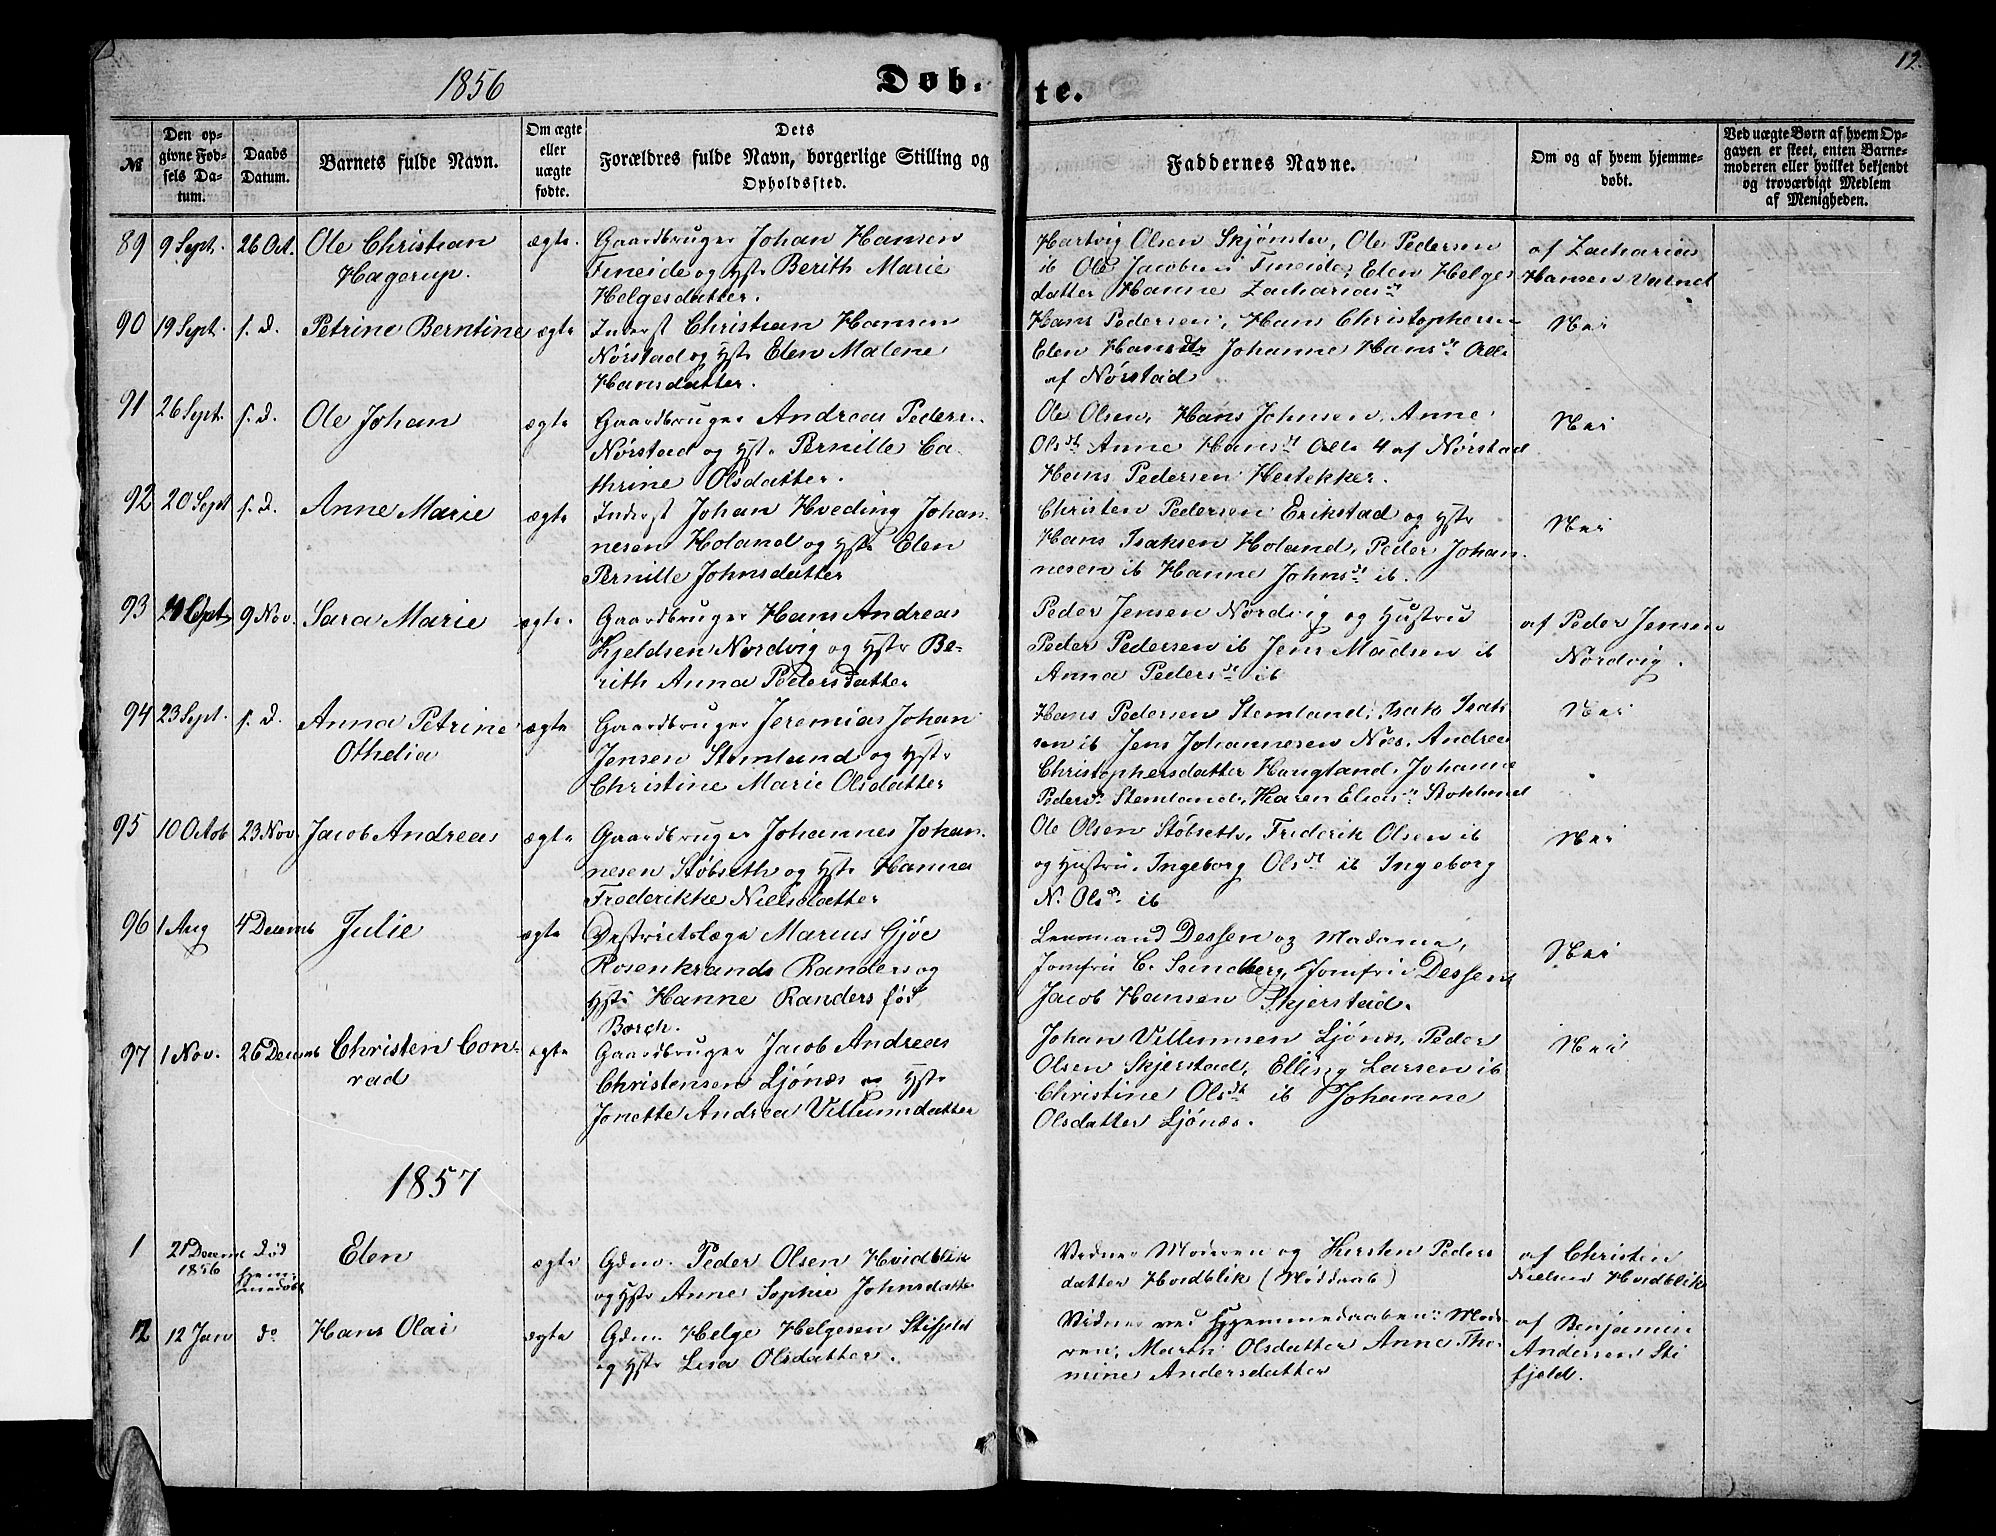 12
1856
Døb. te.
№
Den op-
givne Fød-
sels Da-
tum.
Daabs
Datum.
Barnets fulde Navn.
Om ægte
eller
uægte
fødte.
Dets
Forældres fulde Navn, borgerlige Stilling og
Opholdssted.
Faddernes Navne.
Om og af hvem hjemme-
døbt.
Ved uægte Børn af hvem Op-
gaven er skeet, enten Barne-
moderen eller hvilket bekjendt
og troværdigt Medlem
af Menigheden.
89 9 Sept. 26 Oct. Ole Christian
Hagerup.
ægte.
Gaardbruger Johan Hansen
Fineide og Hst. Berith Marie
Helgesdatter.
Hartvig Olsen Skjønstu, Ole Pedersen
ib Ole Jacobsen Fineide, Elen Helges
datter Hanne Zacharias dt
af Zacharias
Hansen Vatnet
90 19 Sept. s. d. Petrine Berntine ægte
Inderst Christian Hansen
Nørstad og Hst. Elen Malene
Hansdatter.
Hans Pedersen, Hans Christophersen
Elen Hansdtr Johanne Hans dt Alle
af Nørstad
Nei
91 26 Sept. s. d. Ole Johan ægte
Gaardbruger Andreas Peders.
Nørstad og Hst. Pernille Ca-
thrine Olsdatter.
Ole Olsen, Hans Johnsen, Anne
Olsdt Anne Hans dt Alle 4 af Nørstad
Hans Pedersen Hestekker.
Nei
92 20 Sept s. d. Anne Marie ægte
Inderst Johan Hveding Johan-
nesen Holand og Hst. Elen
Pernille Johnsdatter
Christen Pedersen Erikstad og Hstr
Hans Isaksen Holand, Peder Johan-
nesen ib Hanne Johns dt ib.
Nei
93 Sept. 9 Nov. Sara Marie ægte.
Gaardbruger Hans Andreas
Kjeldsen Nordvig og Hstr Be-
rith Anna Pedersdatter
Peder Jensen Nordvig og Hustru
Peder Pedersen ib Jens Madsen ib
Anna Peders dt ib
af Peder Jensen
Nordvig.
94 23 Sept. s. d. Anna Petrine
Othelia
ægte
Gaardbruger Jeremias Johan
Jensen Stemland og Hst.
Christine Marie Olsdatter
Hans Pedersen Stemland, Isak Isak
sen ib Jens Johannesen Næs, Andrea
Christophersdatter Haugland, Johanne
Peders dt Stemland, Karen Elias dt Stokland
Nei
95 10 Octob 23 Nov. Jacob Andreas ægte
Gaardbruger Johannes Johan-
nesen Støbseth og Hst. Hanna
Frederikke Nielsdatter
Ole Olsen Støbseth, Frederik Olsen ib
og Hustru, Ingeborg Ols dt ib Ingeborg
N. Ols dt ib
Nei
96 1 Aug 4 Decemb Julie ægte
Destrictslæge Marius Gjøe
Rosenkrands Randers og
Hst. Hanne Randers fød
Borch.
Lensmand Dessen og Madame,
Jomfru C. Sandberg, Jomfru Dessen
Jacob Hansen Skjerstad.
Nei
97 1 Nov. 26 Decemb Christen Con-
rad
ægte
Gaardbruger Jacob Andreas
Christensen Ljønæs og Hst.
Jonette Andrea Villumsdatter
Johan Villumsen Ljønæs, Peder
Olsen Skjerstad, Elling Larsen ib
Christine Ols dt ib Johanne
Olsdatter Ljønæs.
Nei
1857
1 21 Decemb
1856
død
hjem-
medøbt
Elen ægte
Gdm. Peder Olsen Hvidblik
og Hst. Anne Sophie Johnsdatter
Vidner Moderen og Kirsten Peders
datter Hvidblik (Nøddaab)
af Christen
Nielsen Hvidblik
2 12 Jan do Hans Olai ægte
Gdm. Helge Helgesen Stifjeld
og Hst. Lisa Olsdatter.
Vidner ved Hjemmedaaben: Mod-
ren, Maren Olsdatter Anne Tho-
mine Andersdatter
af Benjamin
Andersen Sti
fjeld.